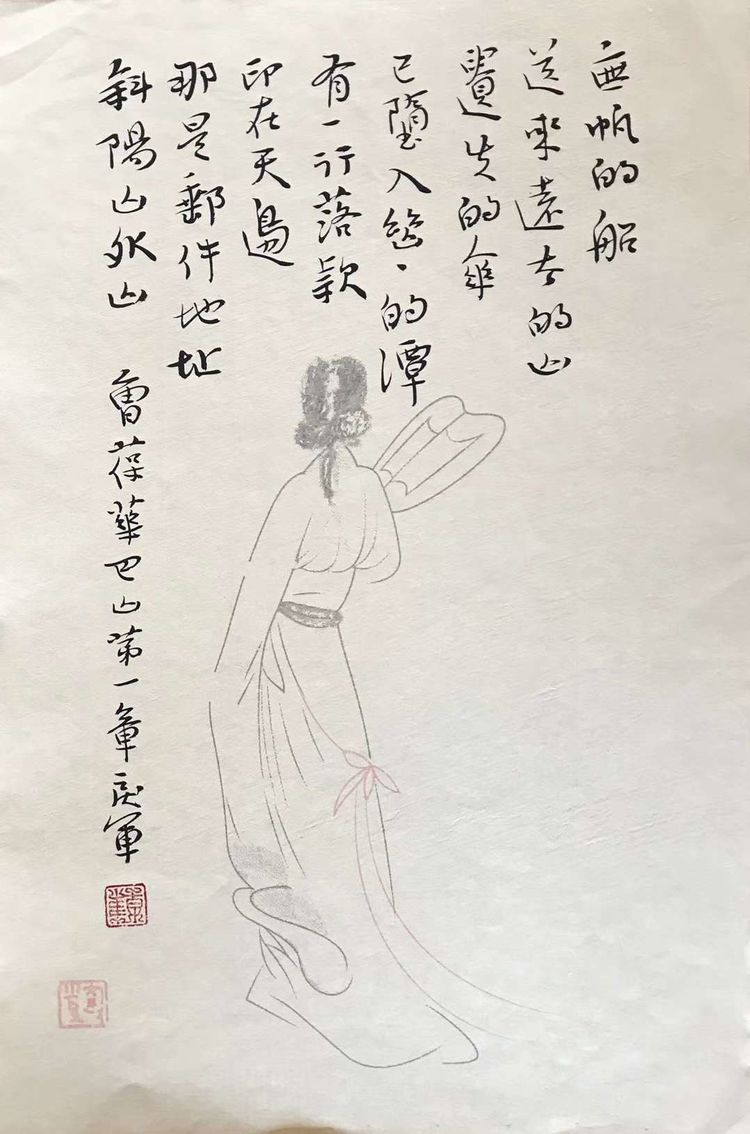 無帆的船
送來遠去的山
遺失的傘
已墮入幽、的潭
有一行落款
印在天邊
那是郵件地址
斜陽山外山 葆華巴山第一章 軍